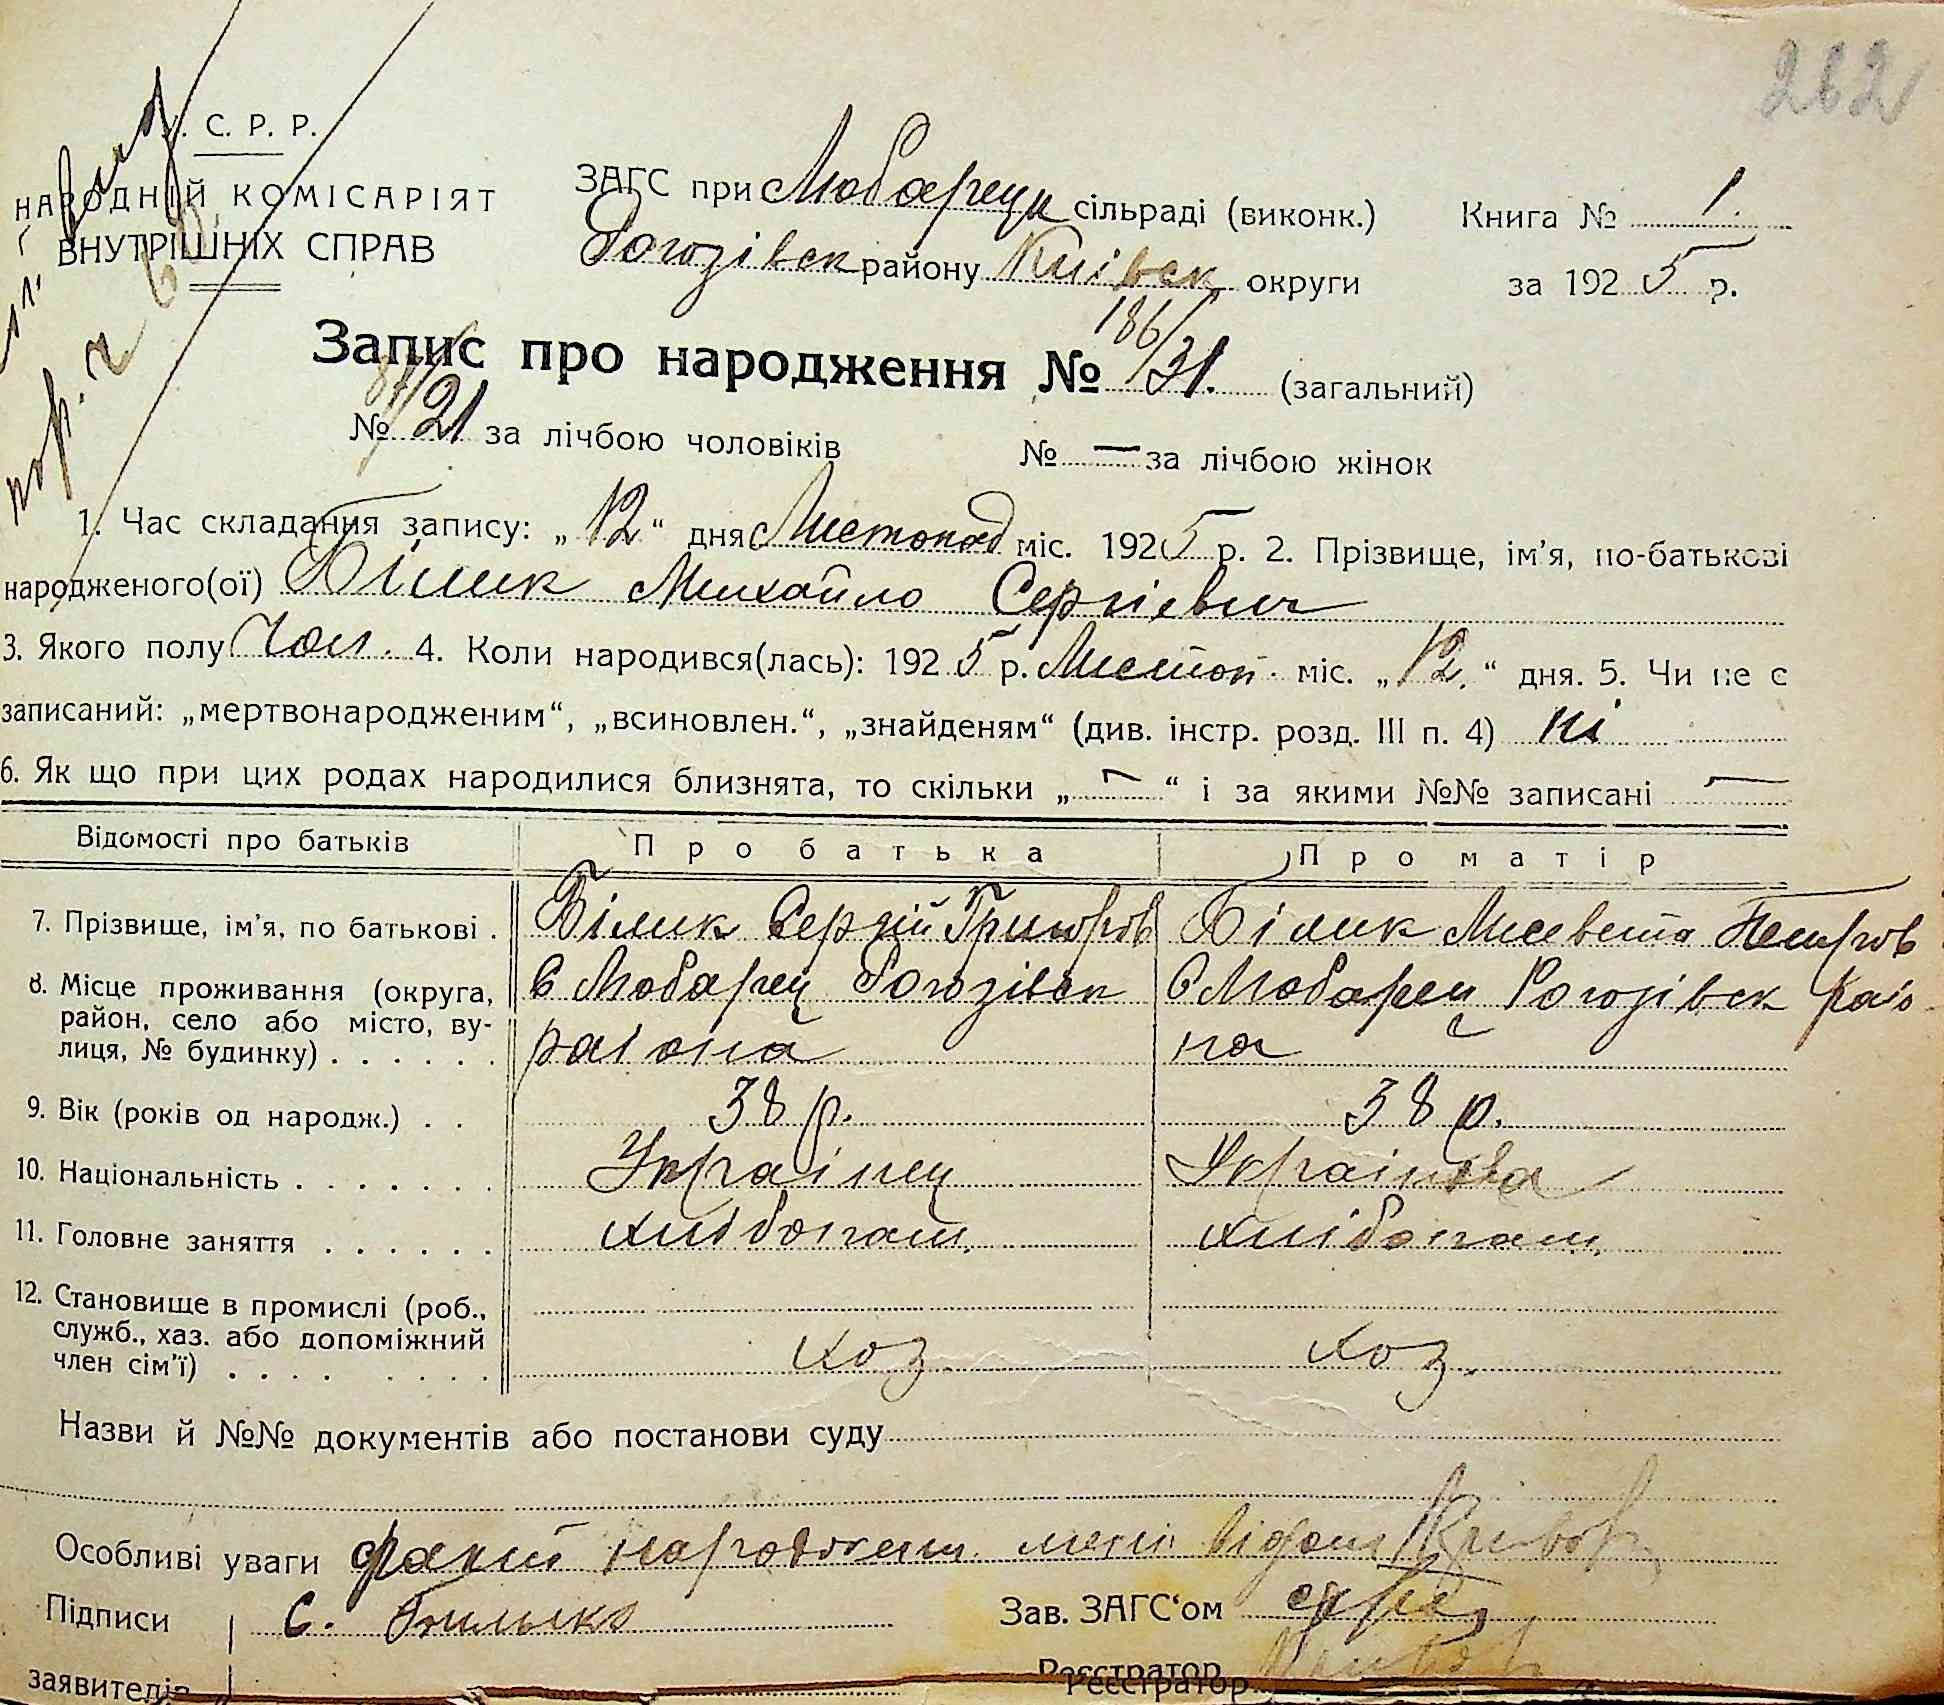 262
У. С. Р. Р.
НАРОДНІЙ КОМІСАРІЯТ
ВНУТРІШНІХ СПРАВ
ЗАГС при Любарецк сільраді (виконк.) Книга № 1.
Рогозівск району Київск округи за 1925 р.
Запис про народження № 186/31. (загальний)
№ 87/21 за лічбою чоловіків № — за лічбою жінок
1. Час складання запису: „12“ дня Листопад міс. 1925 р. 2. Прізвище, ім'я, по-батькові
народженого(ої) Білик Михайло Сергієвич
3. Якого полу Чол. 4. Коли народився(лась): 1925 р. Листоп. міс. „12.“ дня. 5. Чи не є
записаний: „мертвонародженим“, „всиновлен.“, „знайденям“ (див. інстр. розд. III п. 4) ні
6. Як що при цих родах народилися близнята, то скільки „—“ і за якими №№ записані —
Відомості про батьків Про батька Про матір
7. Прізвище, ім'я, по батькові . Білик Сергій Григоров Білик Лисвета Петров
8. Місце проживання (округа, район, село або місто, вулиця, № будинку) . . . . . . с Любарец Рогозівск раіона с Любарец Рогозівск раіона
9. Вік (років од народж.) . . 38 р. 38 р.
10. Національність . . . . . . . Украінец Украінка
11. Головне заняття . . . . . . хлібопаш. хлібопаш.
12. Становище в промислі (роб., служб., хаз. або допоміжний член сім'ї) . . . . . . . . хоз. хоз.
Назви й №№ документів або постанови суду
Особливі уваги факт народжен. мені відом
Підписи С. Билыко Зав. ЗАГС‘ом
заявителів Реєстратор
Реєстратор